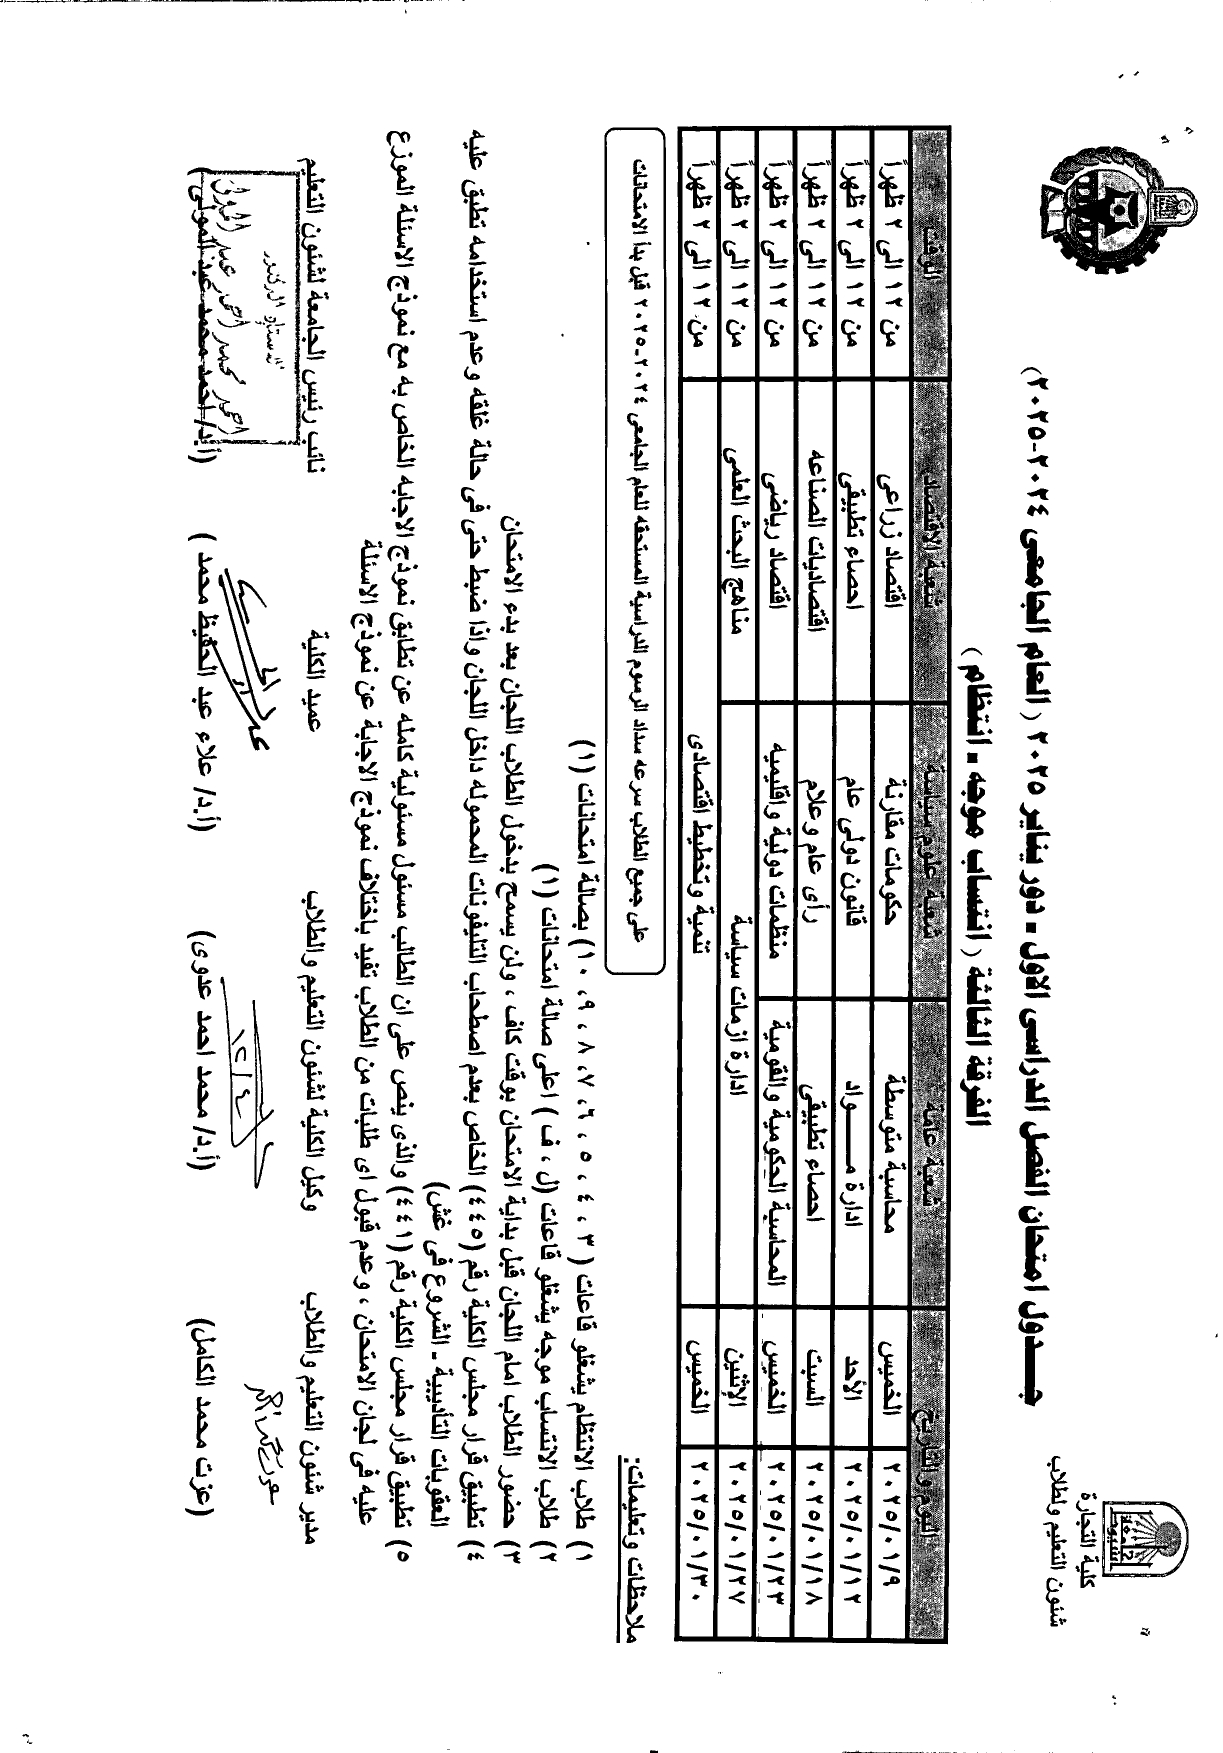 كلية التجارة
شئون التعليم ولطلاب
جـــدول امتحان الفصل الدراسى الاول - دور يناير ٢٠٢٥ ( العام الجامعى ٢٠٢٤-٢٠٢٥)
الفرقة الثالثة ( انتساب موجه - انتظام )
اليوم و التاريخ شعبة عامة شعبة علوم سياسية شعبة الاقتصاد الوقت
٢٠٢٥/٠١/٩ الخميس محاسبة متوسطة حكومات مقارنة اقتصاد زراعى من ١٢ الى ٢ ظهراً
٢٠٢٥/٠١/١٢ الأحد ادارة مـــــواد قانون دولى عام احصاء تطبيقى من ١٢ الى ٢ ظهراً
٢٠٢٥/٠١/١٨ السبت احصاء تطبيقى رأى عام وعلام اقتصاديات الصناعه من ١٢ الى ٢ ظهراً
٢٠٢٥/٠١/٢٣ الخميس المحاسبة الحكومية والقومية منظمات دولية واقليميه اقتصاد رياضى من ١٢ الى ٢ ظهراً
٢٠٢٥/٠١/٢٧ الإثنين ادارة ازمات سياسة مناهج البحث العلمى من ١٢ الى ٢ ظهراً
٢٠٢٥/٠١/٣٠ الخميس تنمية وتخطيط اقتصادى من ١٢ الى ٢ ظهراً
ملاحظات وتعليمات:
على جميع الطلاب سرعه سداد الرسوم الدراسية المستحقه للعام الجامعى ٢٠٢٤-٢٠٢٥ قبل بدأ الامتحانات
١) طلاب الانتظام يشغلو قاعات ( ٣ ، ٤ ، ٥ ، ٦ ، ٧، ٨ ، ٩ ، ١٠) بصالة امتحانات (١)
٢) طلاب الانتساب موجه يشغلو قاعات (ل ، ف ) اعلى صالة امتحانات (١)
٣) حضور الطلاب امام اللجان قبل بداية الامتحان بوقت كاف ، ولن يسمح بدخول الطلاب اللجان بعد بدء الامتحان
٤) تطبيق قرار مجلس الكلية رقم (٤٤٥) الخاص بعدم اصطحاب التليفونات المحموله داخل اللجان واذا ضبط حتى فى حالة غلقه وعدم استخدامه تطبق عليه
العقوبات التأديبية - الشروع فى غش)
٥) تطبيق قرار مجلس الكلية رقم (٤٤١) والذى ينص على ان الطالب مسئول مسئولية كامله عن تطابق نموذج الاجابه الخاص به مع نموذج الاسئلة الموزع
عليه فى لجان الامتحان ، وعدم قبول اى طلبات من الطلاب تفيد باختلاف نموذج الاجابة عن نموذج الاسئلة
مدير شئون التعليم والطلاب وكيل الكلية لشئون التعليم والطلاب عميد الكلية نائب رئيس الجامعة لشئون التعليم
عزت محمد الكامل
١٢/٤
احمد محمد احمد عبد المولى
(عزت محمد الكامل) (أ.د/ محمد احمد عدوى) (أ.د/ علاء عبد الحفيظ محمد ) (أ.د/ احمد محمد عبد المولى )